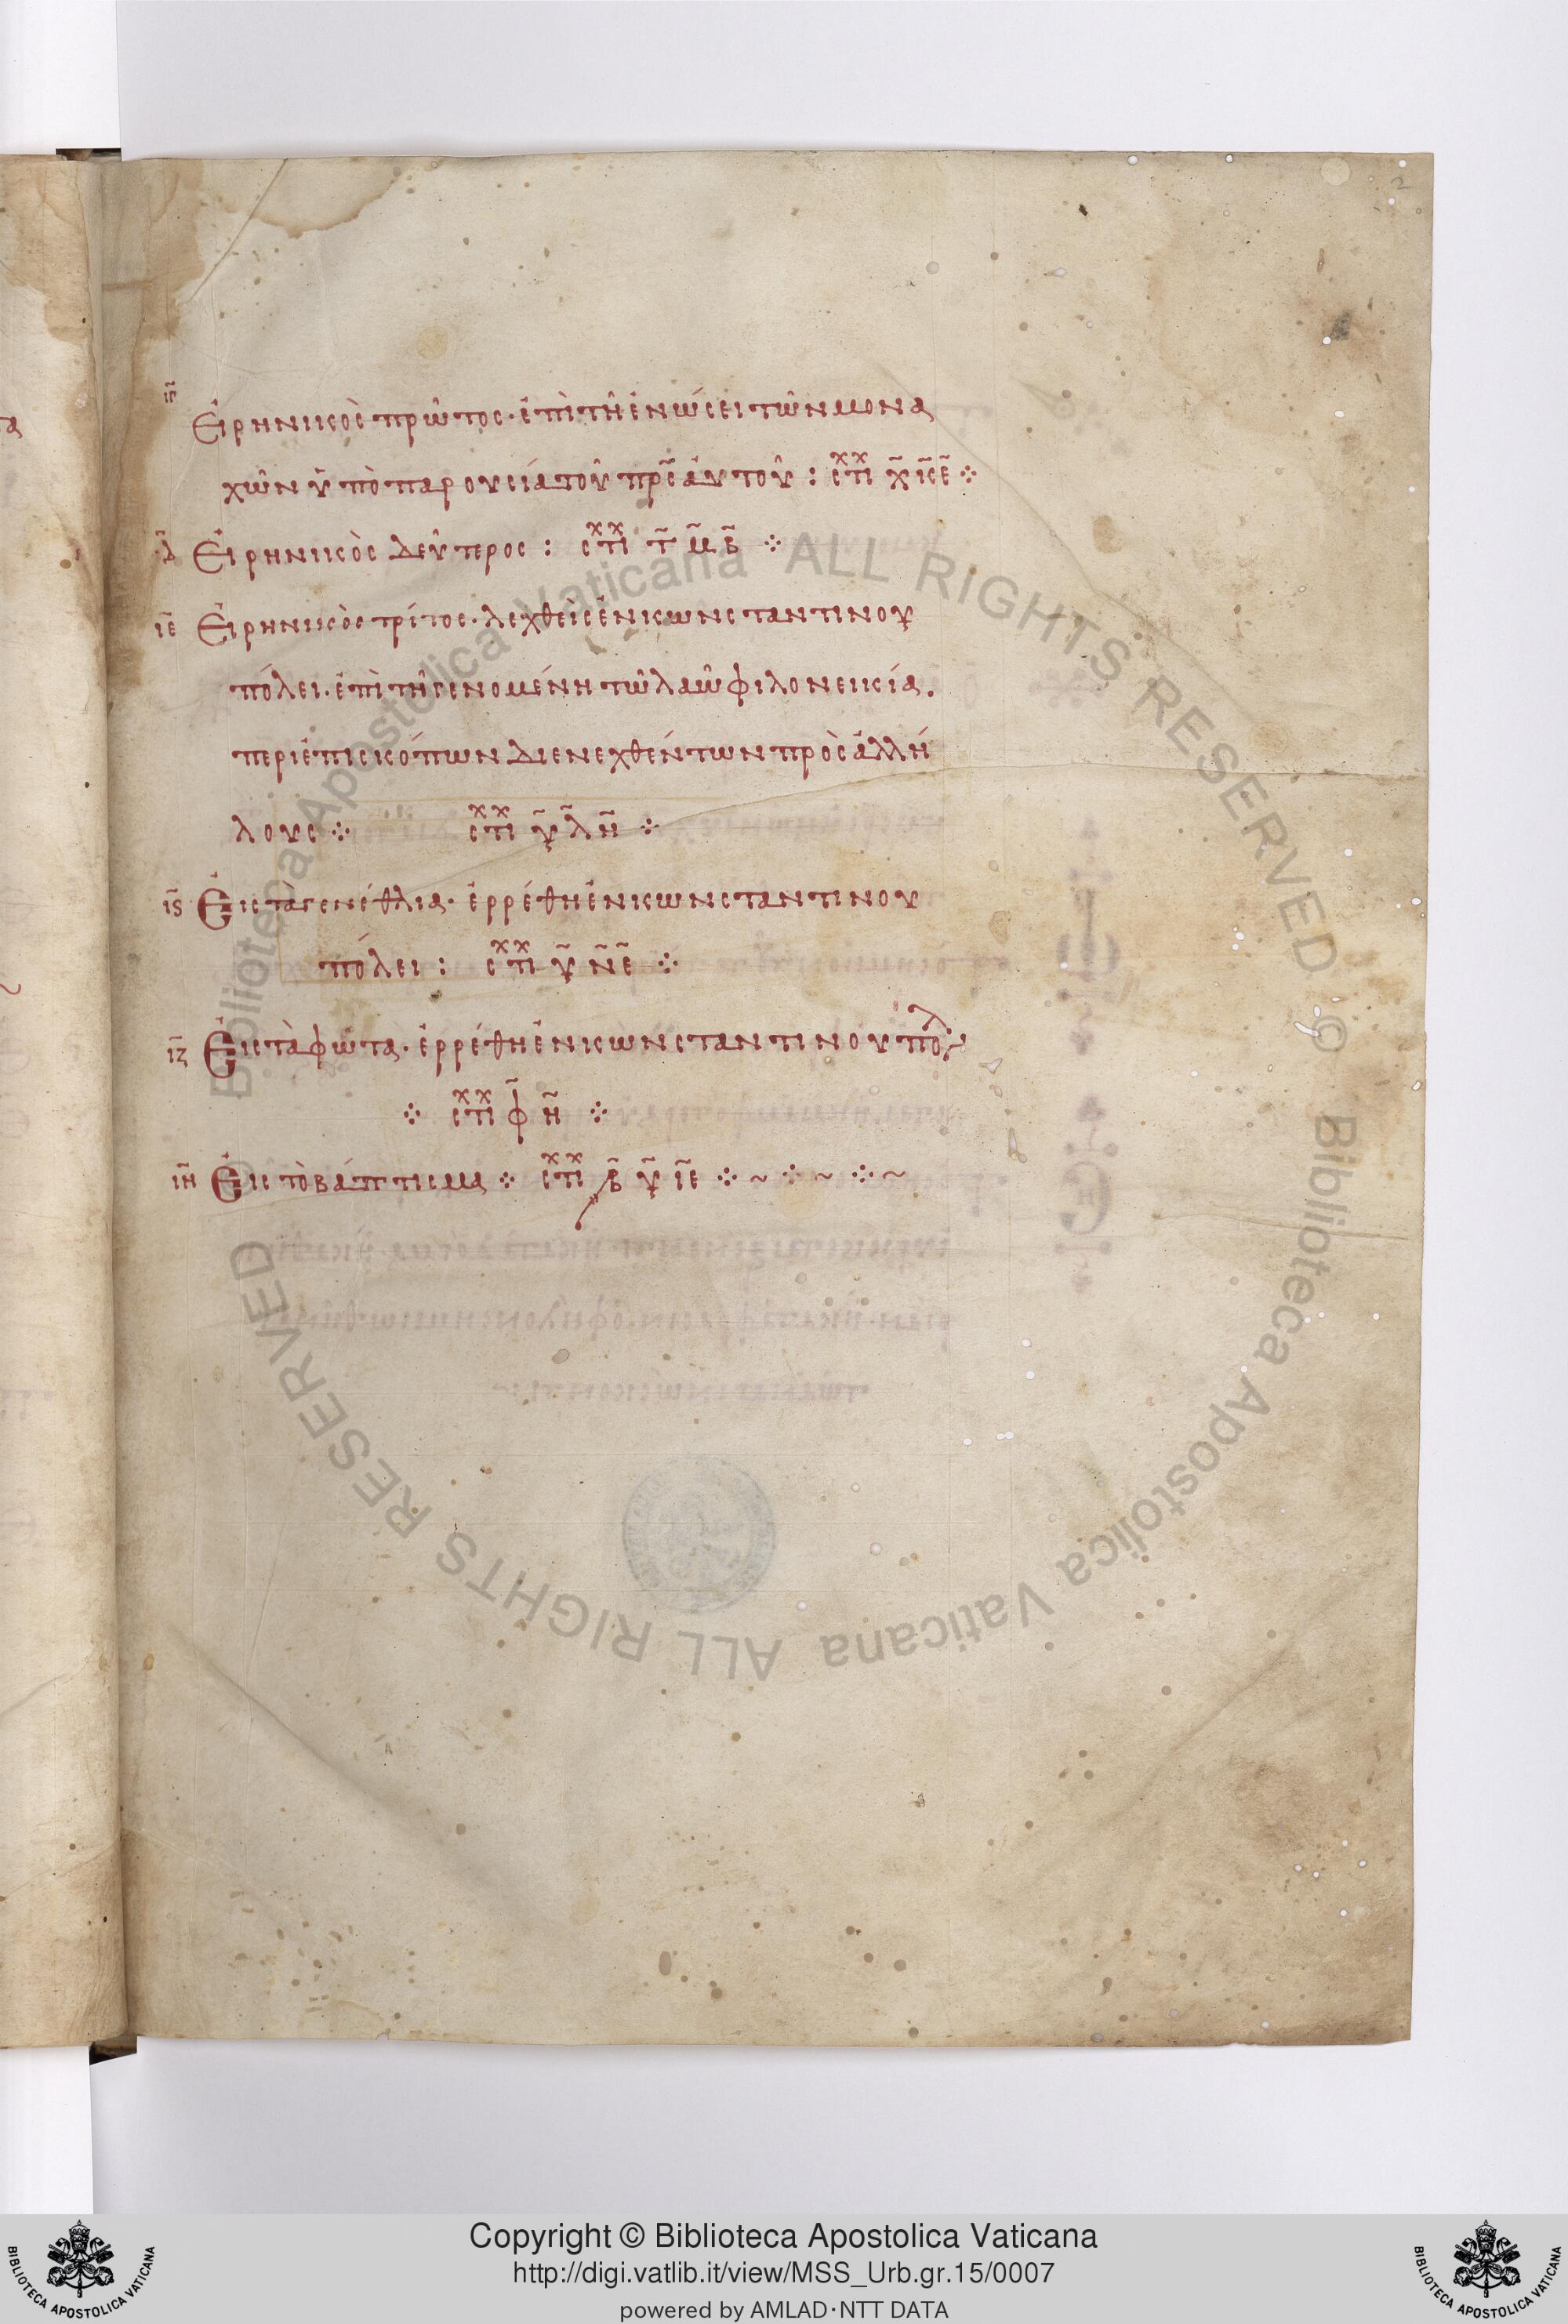 2
ιγ Εἰρηνικὸς πρῶτος· ἐπὶ τῆ ἑνώσει τῶν μονα
χῶν ὑπὸ παρουσία τοῦ πρς αὐτοῦ : στι χκε
ιδ Εἰρηνικὸς δεύτερος : στι τμβ
ιε Εἰρηνικὸς τρίτος· λεχθεὶς ἐν κωνσταντινου
πόλει· ἐπὶ τῆ γενομένη τῶ λαῶ φιλονεικία.
περὶ ἐπισκόπων διενεχθέντων πρὸς ἀλλή
λους στι υλη
ις Εἰς τὰ γενέθλια· ἐρρέθη ἐν κωνσταντινου
πόλει : στι υνε
ιζ Εἰς τὰ φῶτα· ἐρρέθη ἐν κωνσταντινουπολ
στι φη
ιη Εἰς τὸ βάπτισμα στι ͵β υ ιε
Biblioteca Apostolica Vaticana ALL RIGHTS RESERVED © Biblioteca Apostolica Vaticana ALL RIGHTS RESERVED
Copyright © Biblioteca Apostolica Vaticana
http://digi.vatlib.it/view/MSS_Urb.gr.15/0007
powered by AMLAD·NTT DATA
BIBLIOTECA APOSTOLICA VATICANA
BIBLIOTECA APOSTOLICA VATICANA